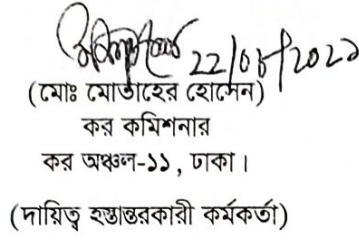 22/08/2021
(মোঃ মোতাহের হোসেন)
কর কমিশনার
কর অঞ্চল-১১, ঢাকা।
(দায়িত্ব হস্তান্তরকারী কর্মকর্তা)